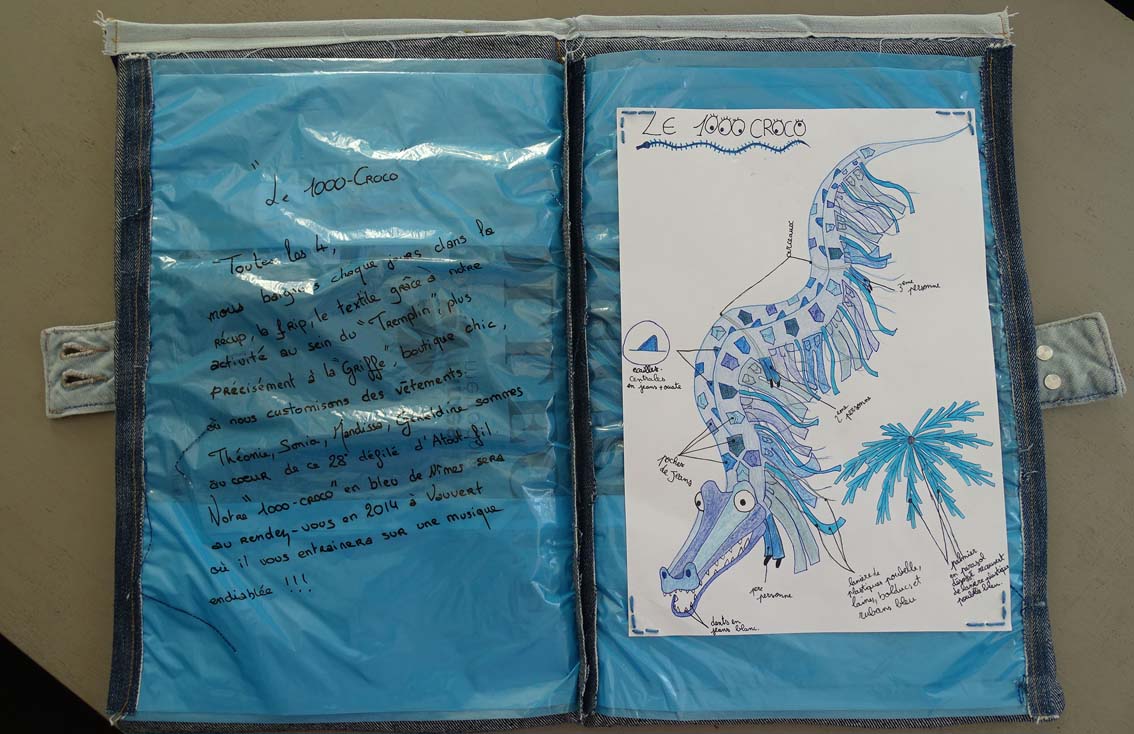 "Le 1000-Croco"
Toutes les 4,
nous baignons chaque jours dans la
récup, la frip, le textile grâce à notre
activité au sein du "Tremplin", plus
précisément à la "Griffe", boutique chic,
où nous customisons des vêtements.
Théonie, Sonia, Mandissa, Géraldine sommes
au coeur de ce 28e défilé d'Atout-fil
Notre "1000-croco" en bleu de Nîmes sera
au rendez-vous en 2014 à Vauvert
où il vous entrainera sur une musique
endiablée !!!
LE 1000 CROCO
arceaux
3ème personne
écailles
centrales
en jeans + ouate
2ème personne
poches
de Jeans
1ère
personne
dents en
jeans blanc.
lanière de
plastiques poubelle,
laine, bolduc, et
rubans bleu
palmier
en parasol
déplié recouvert
de lanière plastique
poubelle bleu.